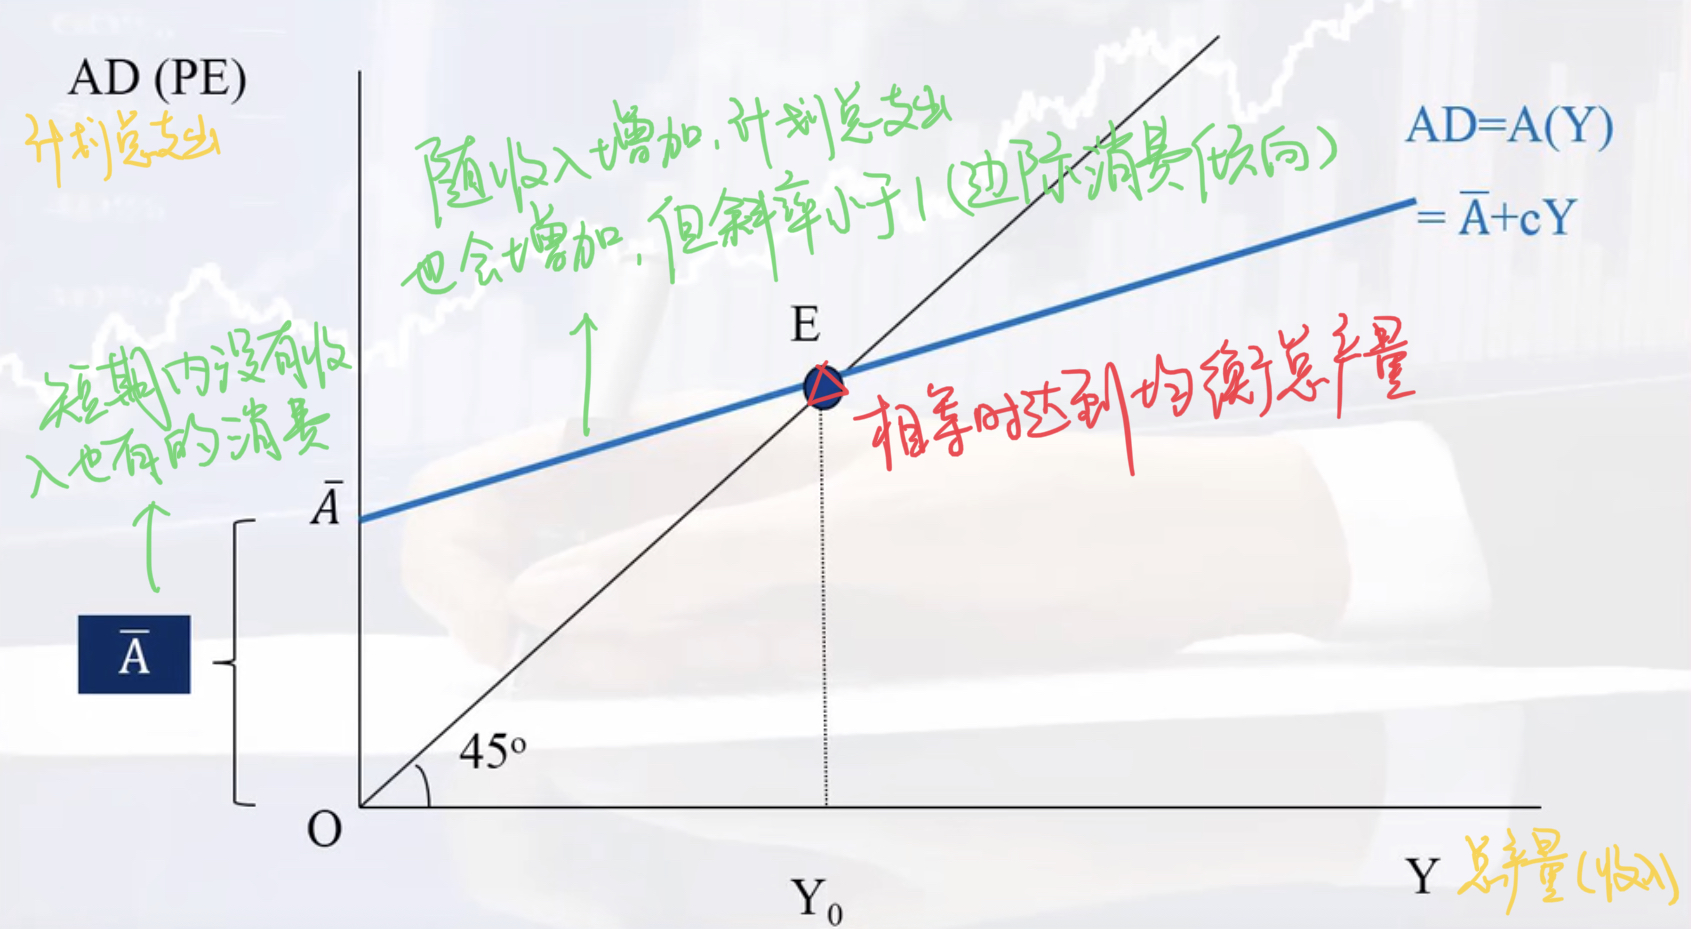 AD (PE)
计划总支出
随收入增加,计划总支出
也会增加,但斜率小于1(边际消费倾向)
AD=A(Y)
= A̅+cY
E
相等时达到均衡总产量
短期内没有收
入也有的消费
A̅
A̅
45°
O
Y₀
Y 总产量(收入)